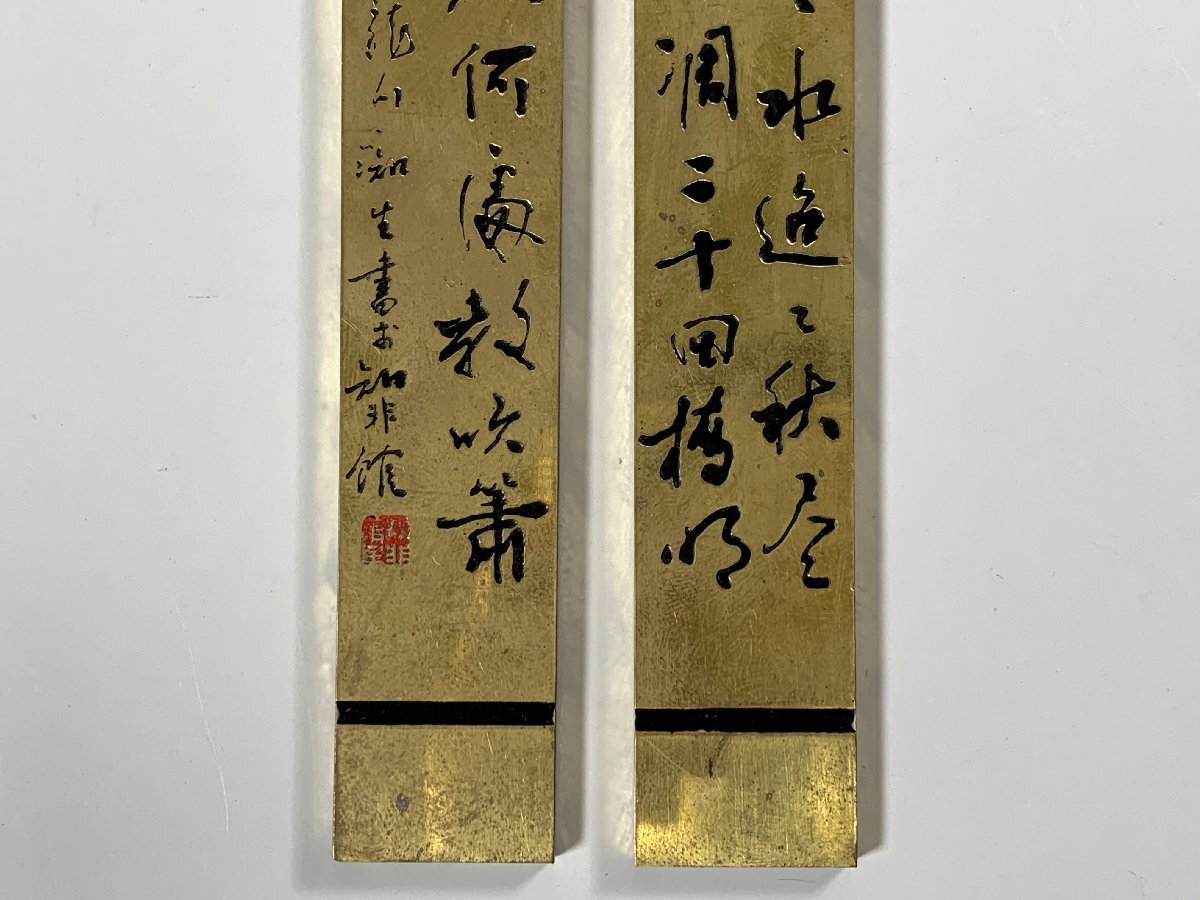 水迢〻秋尽
凋二十四橋明
何處教吹簫
生書於知非館